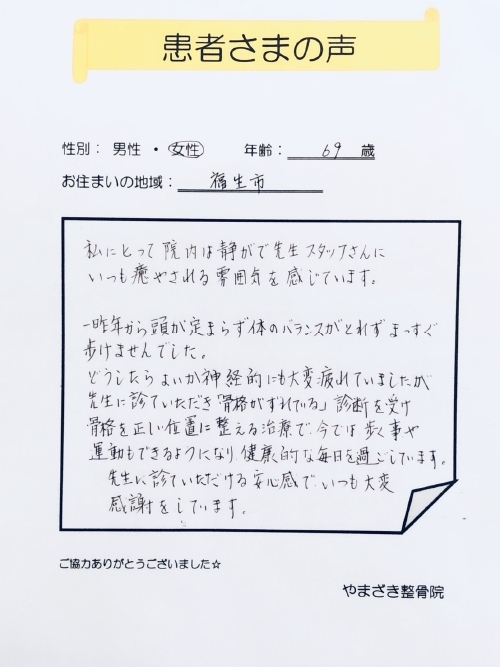 患者さまの声
性別： 男性 ・ 女性 年齢： 69 歳
お住まいの地域： 福生市
私にとって院内は静がで先生スタッフさんに
いつも癒やされる雰囲気を感じています。
一昨年から頭が定まらず体のバランスがとれずまっすぐ
歩けませんでした。
どうしたらよいか神経的にも大変疲れていましたが
先生に診ていただき「骨格がずれている」診断を受け
骨格を正しい位置に整える治療で、今では歩く事や
運動もできるようになり健康的な毎日を過ごしています。
先生に診ていただける安心感で、いつも大変
感謝をしています。
ご協力ありがとうございました☆
やまざき整骨院